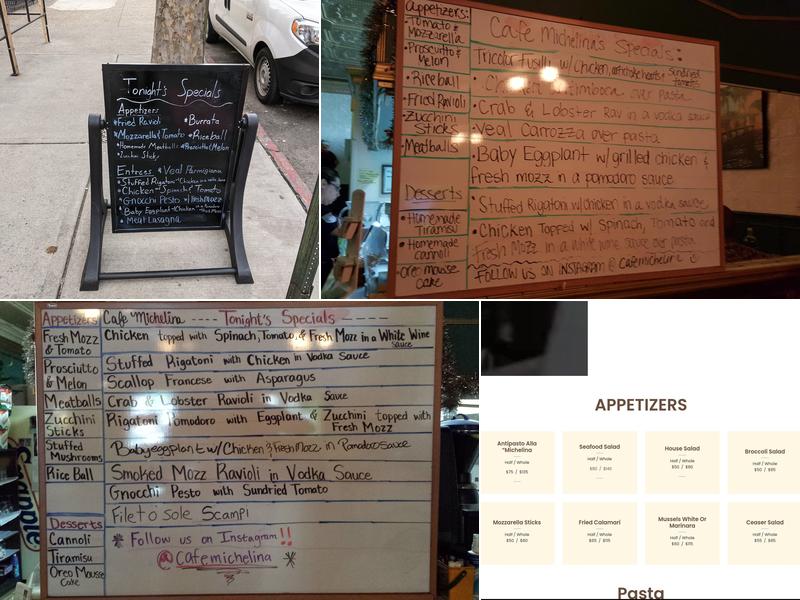 Tonight's Specials
Appetizers
*Fried Ravioli *Burrata
*Mozzarella & Tomato *Rice ball
*Homemade Meatballs *Prosciutto & Melon
*Zucchini Sticks
Entrees *Veal Parmigiana
*Stuffed Rigatoni w/ Chicken in a vodka
*Chicken w/ Spinach & Tomato
*Gnocchi Pesto w/
*Baby Eggplant w/ Chicken
*Meat Lasagna
Appetizers:
•Tomato & Mozzarella
•Prosciutto & Melon
•Rice ball
•Fried Ravioli
•Zucchini Sticks
•Meatballs
Desserts
•Homemade Tiramisu
•Homemade cannoli
•Oreo mousse cake
Cafe Michelina's Specials:
Tricolor fusilli w/ Chicken, artichoke hearts & Sundried tomatoes
over pasta
•Crab & Lobster Rav in a vodka sauce
•Veal Carrozza over pasta
•Baby Eggplant w/ grilled chicken &
fresh mozz in a pomodoro sauce
•Stuffed Rigatoni w/ chicken in a vodka sauce
•Chicken Topped w/ Spinach, Tomato and
Fresh Mozz in a white wine sauce over pasta
FOLLOW US ON INSTAGRAM @
Appetizers
Fresh Mozz & Tomato
Prosciutto & Melon
Meatballs
Zucchini Sticks
Stuffed Mushrooms
Rice Ball
Desserts
Cannoli
Tiramisu
Oreo Mousse Cake
Cafe Michelina ---- Tonight's Specials -----
Chicken topped with Spinach, Tomato, & Fresh Mozz in a White Wine
Sauce
Stuffed Rigatoni with Chicken in Vodka Sauce
Scallop Francese with Asparagus
Crab & Lobster Ravioli in Vodka Sauce
Rigatoni Pomodoro with Eggplant & Zucchini topped with
Fresh Mozz
Baby eggplant w/ Chicken & Fresh Mozz in Pomodoro Sauce
Smoked Mozz Ravioli in Vodka Sauce
Gnocchi Pesto with Sundried Tomato
Filet o' sole Scampi
* Follow us on Instagram !!
@Cafemichelina *
APPETIZERS
Antipasto Alla
"Michelina
Half / Whole
$75 / $135
Seafood Salad
Half / Whole
$80 / $140
House Salad
Half / Whole
$50 / $80
Broccoli Salad
Half / Whole
$50 / $85
Mozzarella Sticks
Half / Whole
$50 / $80
Fried Calamari
Half / Whole
$65 / $115
Mussels White Or
Marinara
Half / Whole
$60 / $115
Ceaser Salad
Half / Whole
$55 / $85
Pasta